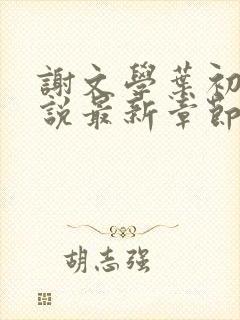 謝文學葉初
説最新章節
胡志强